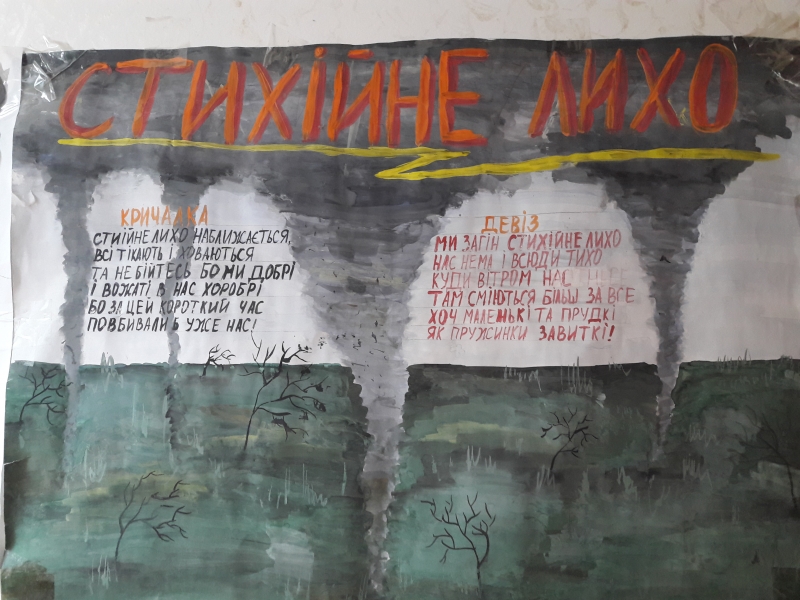 СТИХІЙНЕ ЛИХО
КРИЧАЛКА
СТИІЙНЕ ЛИХО НАБЛИЖАЄТЬСЯ,
ВСІ ТІКАЮТЬ І ХОВАЮТЬСЯ
ТА НЕ БІЙТЕСЬ БО МИ ДОБРІ
І ВОЖАТІ В НАС ХОРОБРІ
БО ЗА ЦЕЙ КОРОТКИЙ ЧАС
ПОВБИВАЛИ Б УЖЕ НАС!
ДЕВІЗ
МИ ЗАГІН СТИХІЙНЕ ЛИХО
НАС НЕМА І ВСЮДИ ТИХО
КУДИ ВІТРОМ НАС
ТАМ СМІЮТЬСЯ БІЛЬШ ЗА ВСЕ
ХОЧ МАЛЕНЬКІ ТА ПРУДКІ
ЯК ПРУЖИНКИ ЗАВИТКІ!